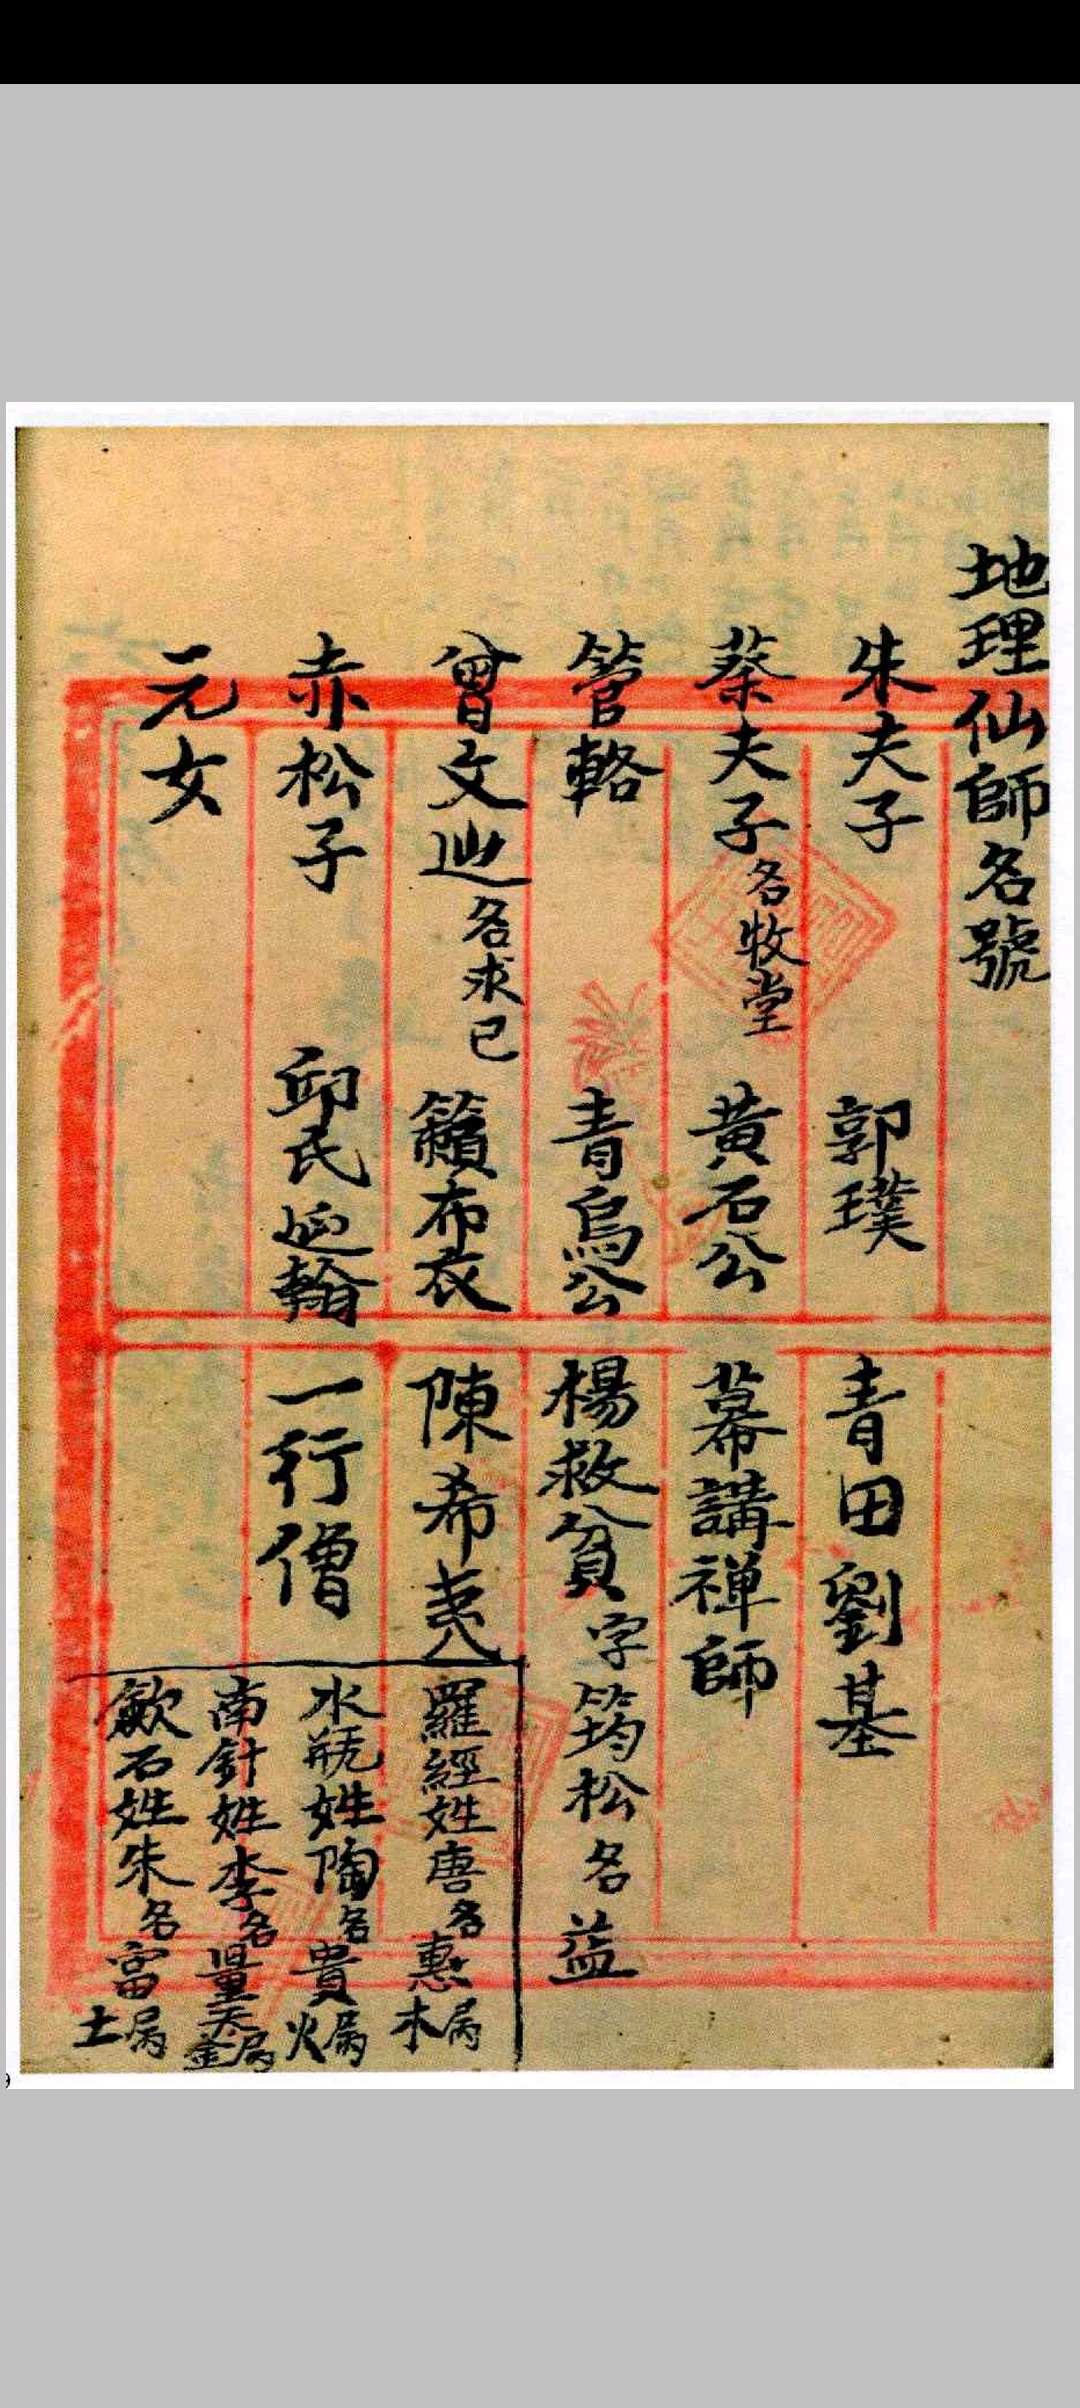 地理仙師名號
朱夫子 郭璞 青田劉基
蔡夫子名牧堂 黃石公 幕講禅師
管輅 青烏公 楊救貧字筠松名益
曾文辿名求已 籟布衣 陳希夷
赤松子 邱氏延翰 一行僧
元女
羅經姓唐名惠属木
水瓶姓陶名貴属火
南針姓李名量天属金
姓朱名富属土